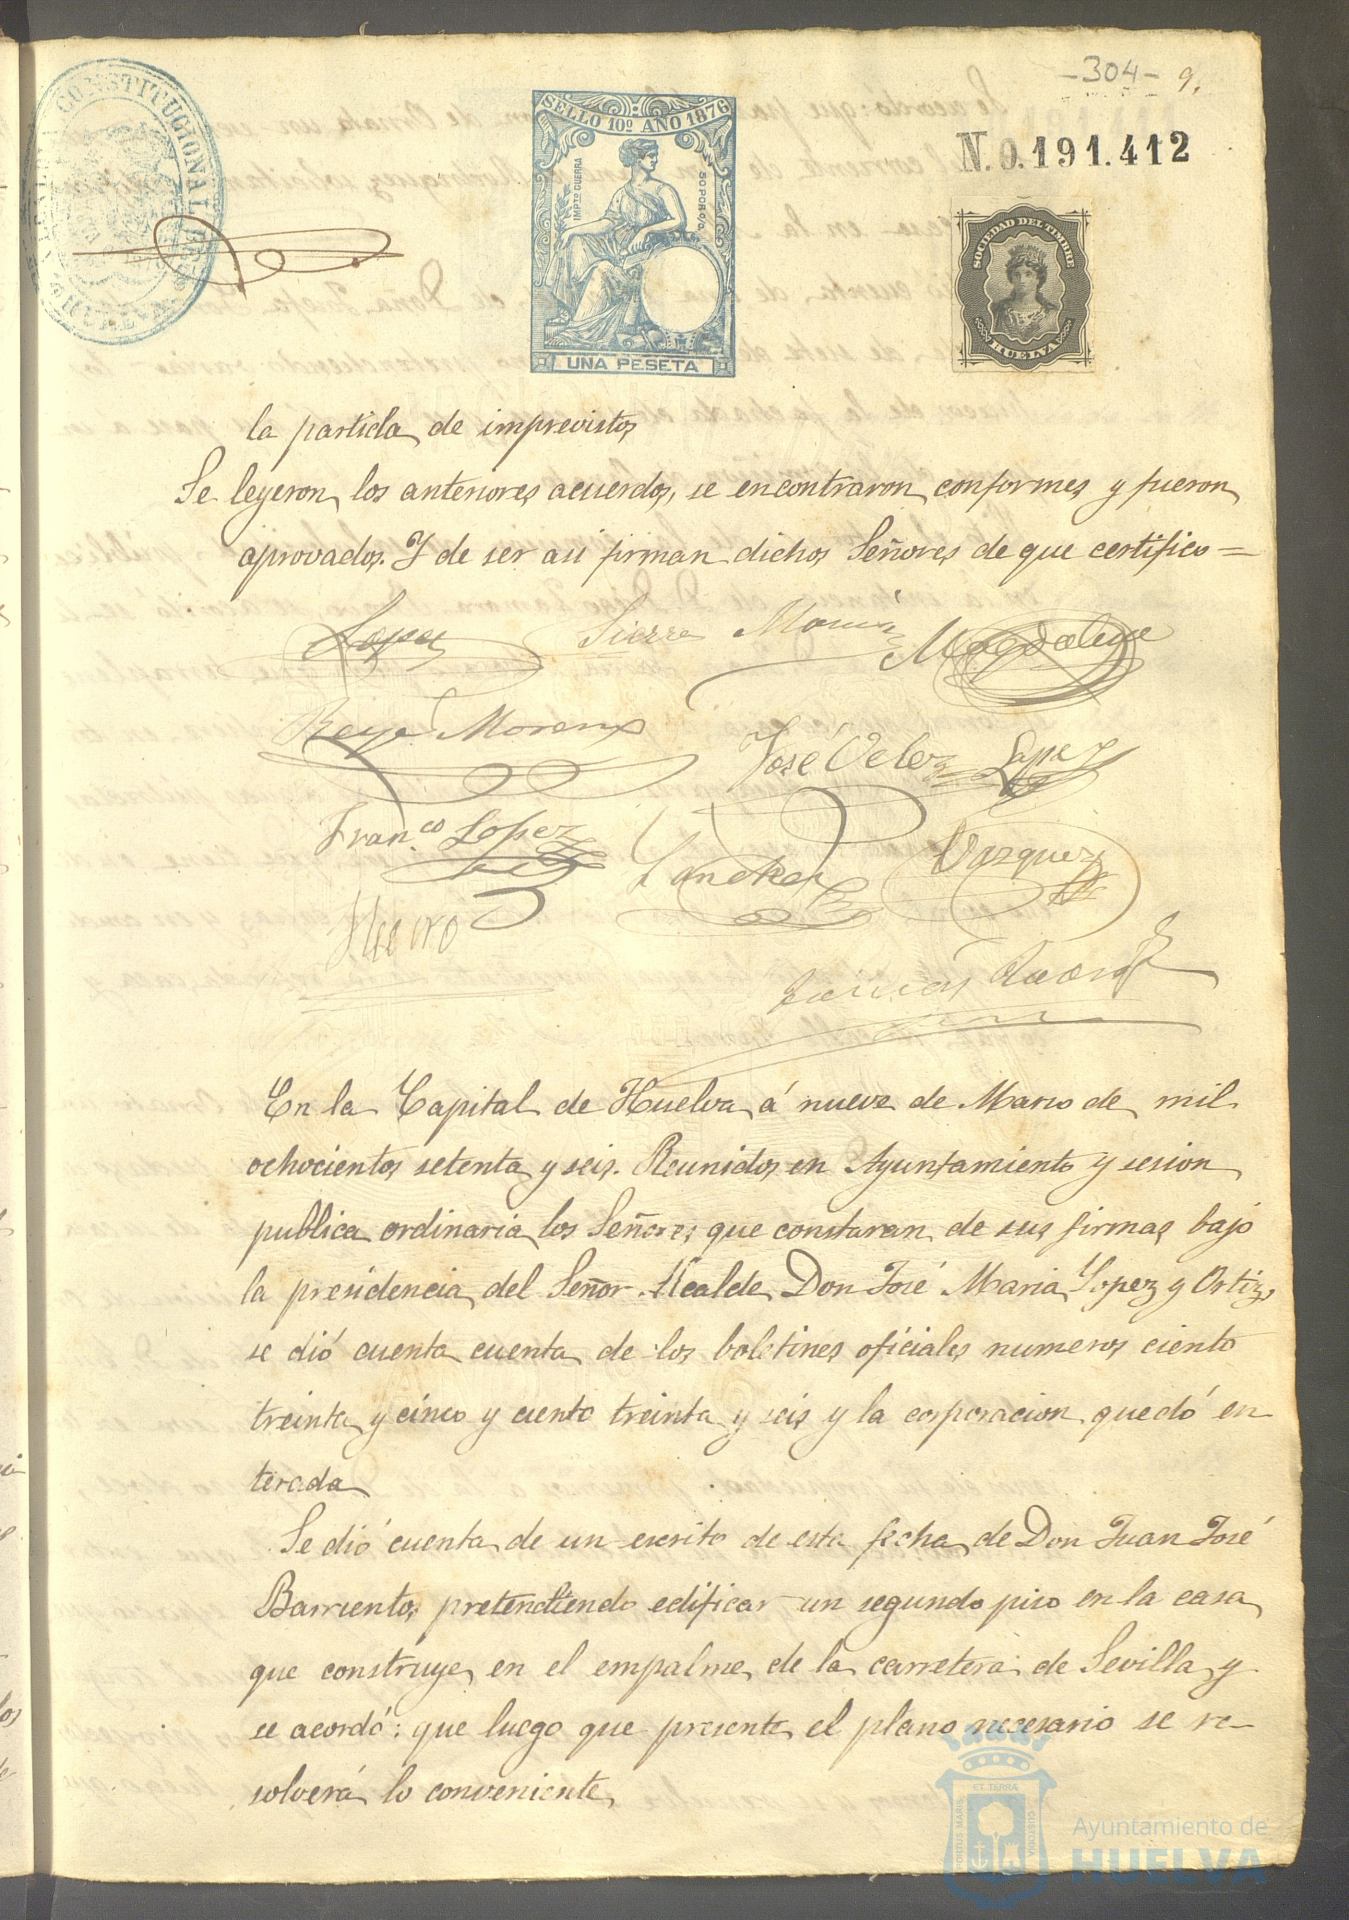 -304- 9.
ALCALDIA CONSTITUCIONAL
HUELVA
SELLO 10º AÑO 1876
IMPTO GUERRA
50 POR 0/0
UNA PESETA
N. 0.191.412
SOCIEDAD DEL TIMBRE
HUELVA
la partida de imprevistos
Se leyeron los anteriores acuerdos, se encontraron conformes y fueron
aprovados. Y de ser asi firman dichos Señores de que certifico =
Lopez Sierra
Reyes Moreno
José Velez Lopez
Franco Lopez Sanchez Vazquez
En la Capital de Huelva á nueve de Marzo de mil
ochocientos setenta y seis. Reunidos en Ayuntamiento y sesion
publica ordinaria los Señores que constaran de sus firmas bajo
la presidencia del Señor Alcalde Don José Maria Lopez y Ortiz,
se dió cuenta cuenta de los boletines oficiales numeros ciento
treinta y cinco y ciento treinta y seis y la corporacion quedó en
terada
Se dió cuenta de un escrito de esta fecha de Don Juan José
Barrientos pretendiendo edificar un segundo piso en la casa
que construye en el empalme de la carretera de Sevilla y
se acordó: que luego que presente el plano necesario se re-
solverá lo conveniente
PORTUS MARIS ET TERRAE CUSTODIA
Ayuntamiento de
HUELVA